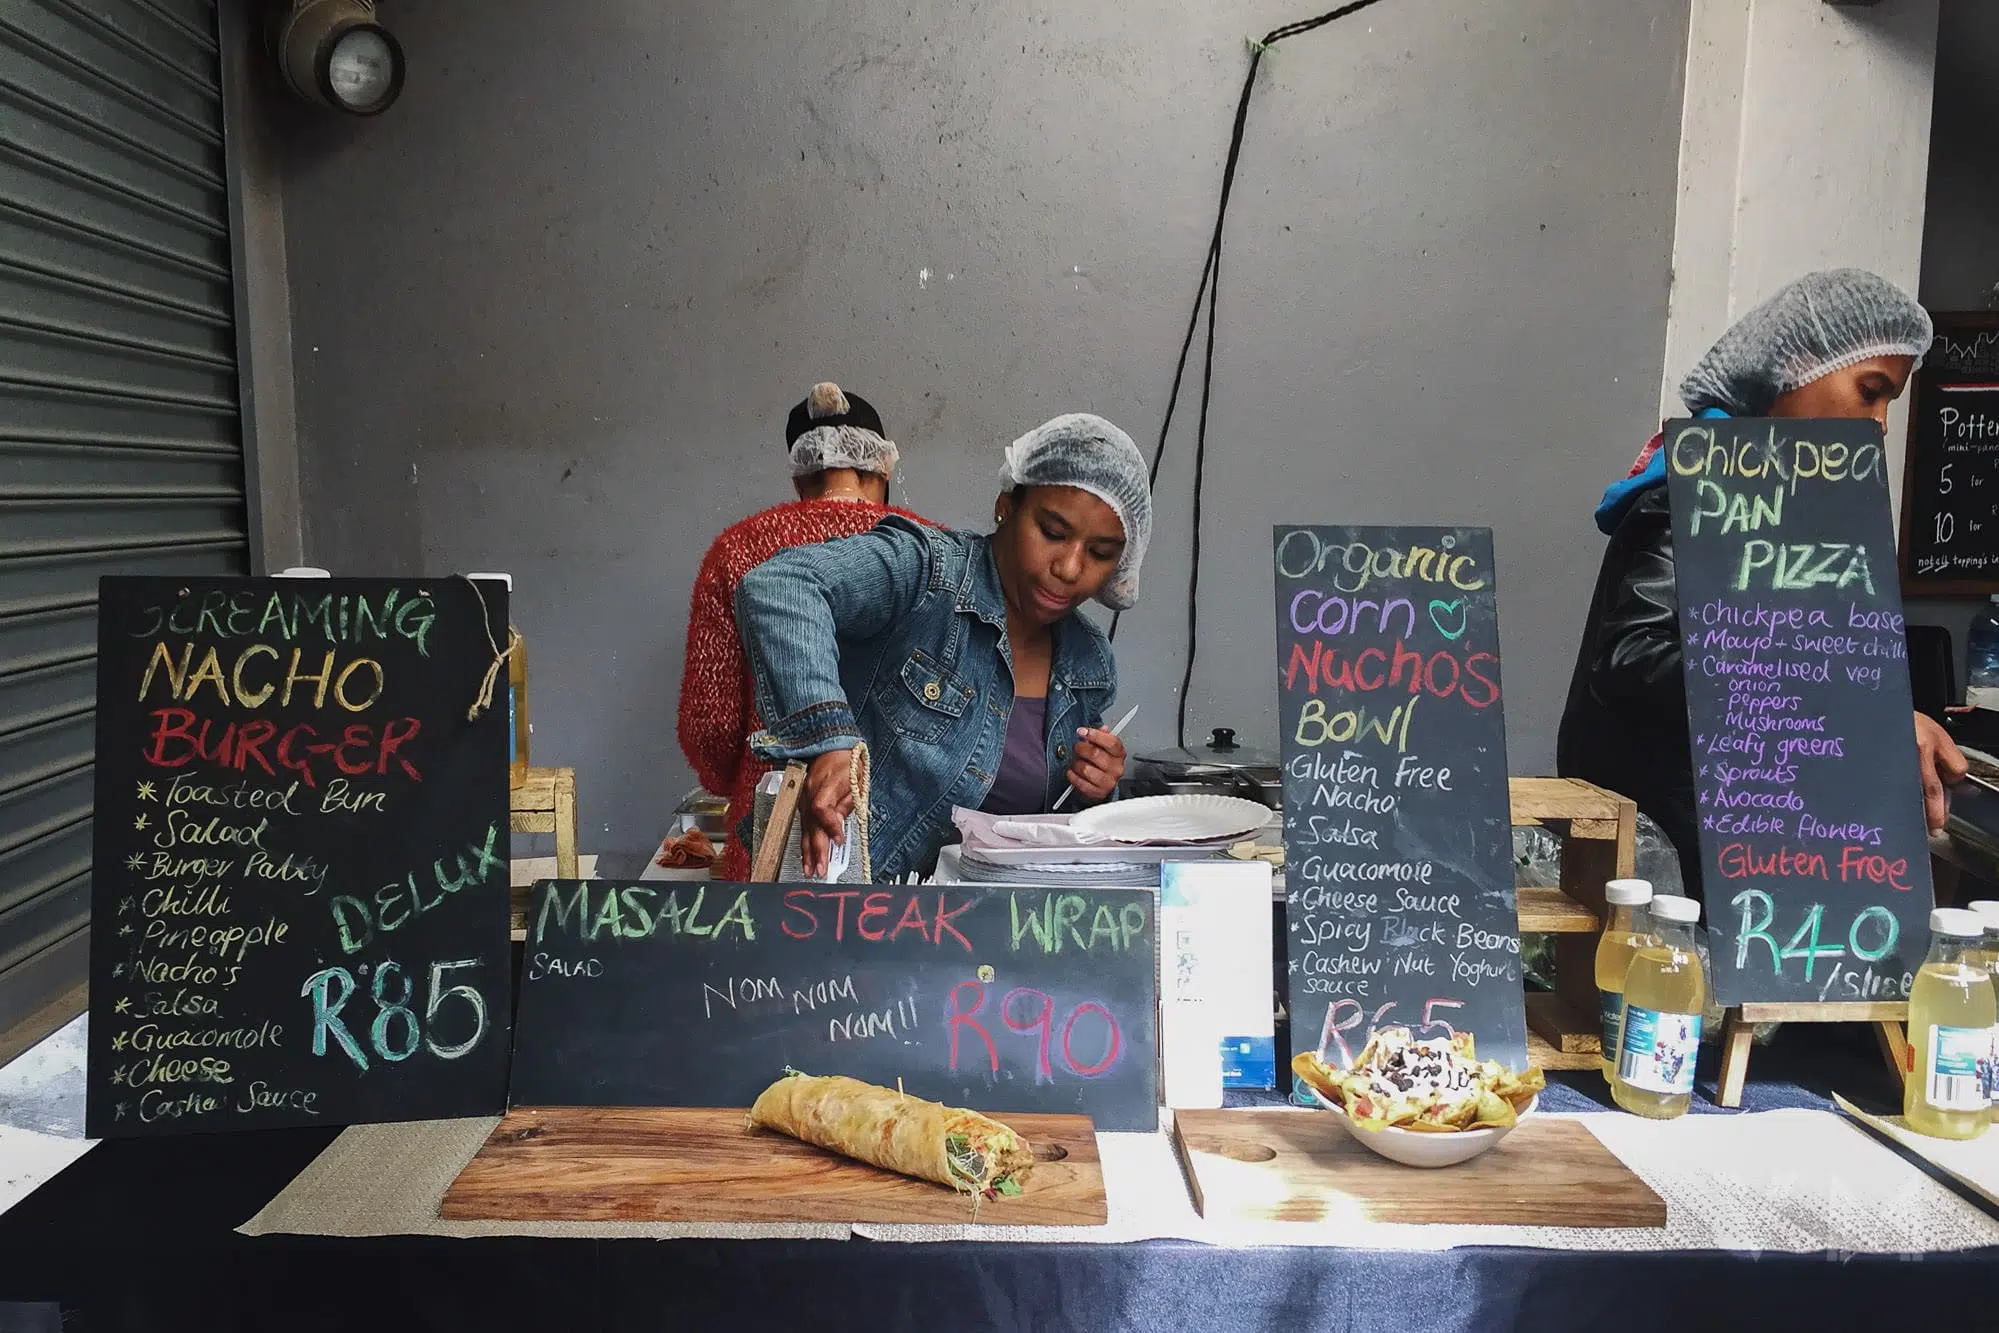 SCREAMING
NACHO
BURGER
* Toasted Bun
* Salad
* Burger Patty
* Chilli
* Pineapple
* Nacho's
* Salsa
* Guacomole
* Cheese
* Cashew Sauce
DELUX
R85
MASALA STEAK WRAP
SALAD
NOM NOM
NOM!!
R90
Organic
Corn
Nacho's
Bowl
* Gluten Free
Nacho
* Salsa
* Guacomole
* Cheese Sauce
* Spicy Black Beans
* Cashew Nut Yoghurt
sauce
R65
Chickpea
PAN
PIZZA
* Chickpea base
* Mayo + sweet chilli
* Caramelised veg
- onion
- Peppers
- Mushrooms
* Leafy greens
* Sprouts
* Avocado
* Edible flowers
Gluten Free
R40
/slice
5 for
10 for
not all topping's